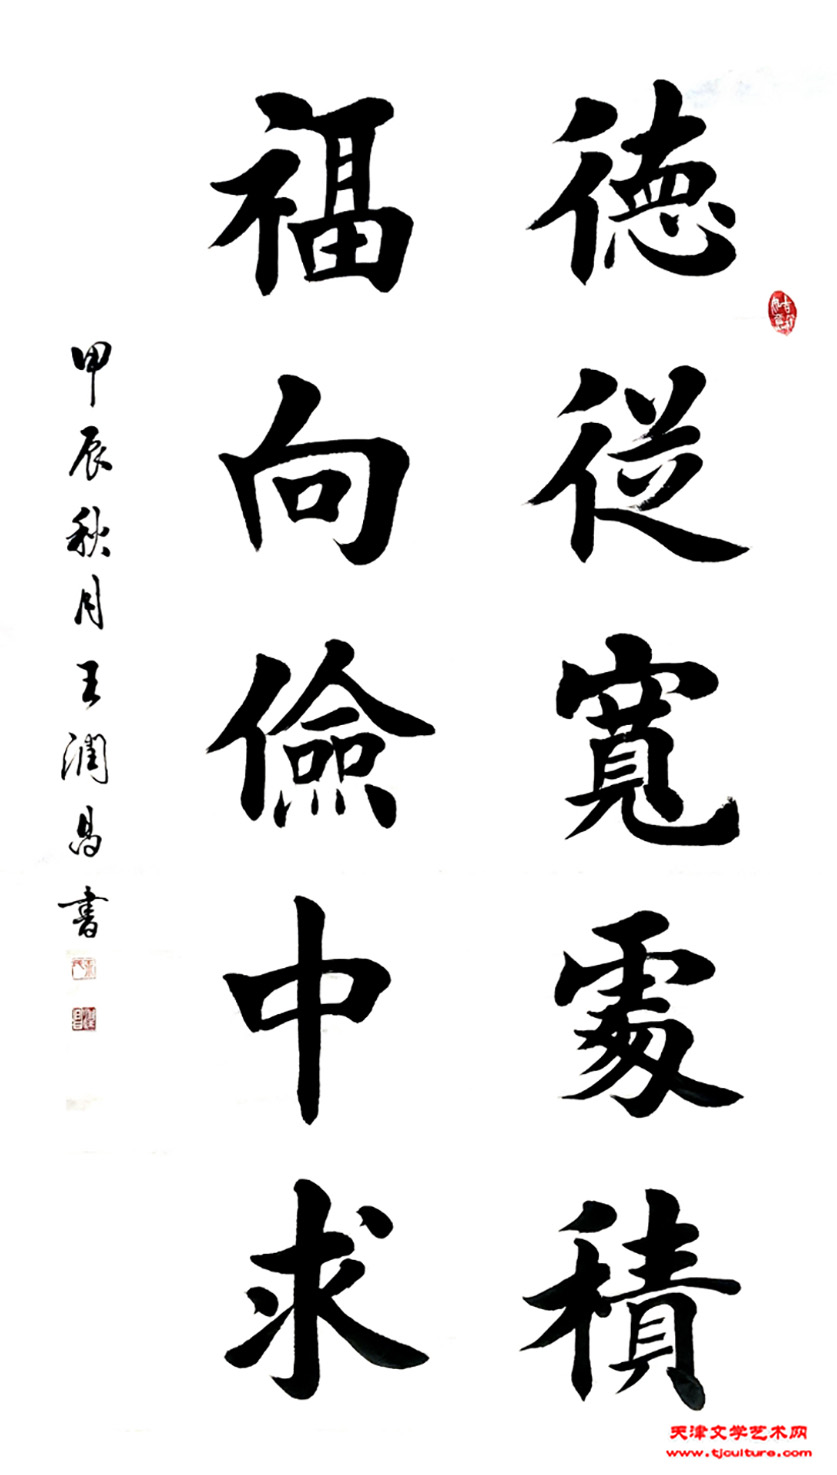 德從寬處積
福向儉中求
甲辰秋月王潤昌書
天津文学艺术网
www.tjculture.com